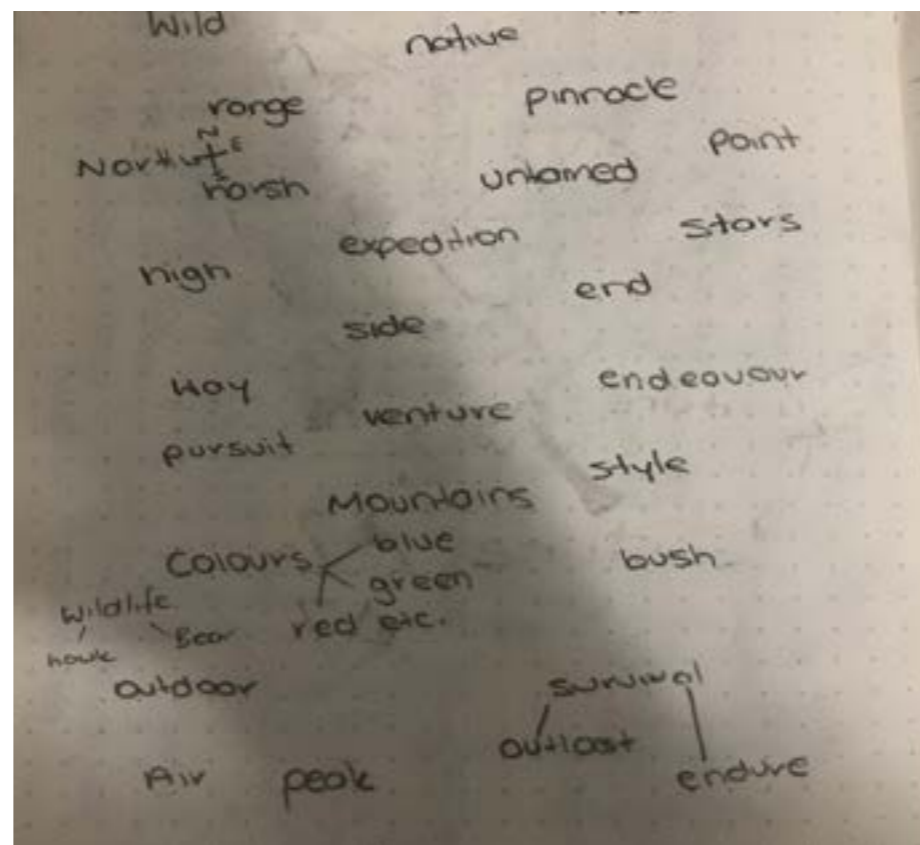 Wild
native
range
pinnacle
North
N
E
Point
harsh
untamed
expedition
stars
high
end
side
way
endeavour
venture
pursuit
style
Mountains
Colours
blue
green
red etc.
bush
Wildlife
hawk
Bear
outdoor
survival
outlast
endure
Air
peak